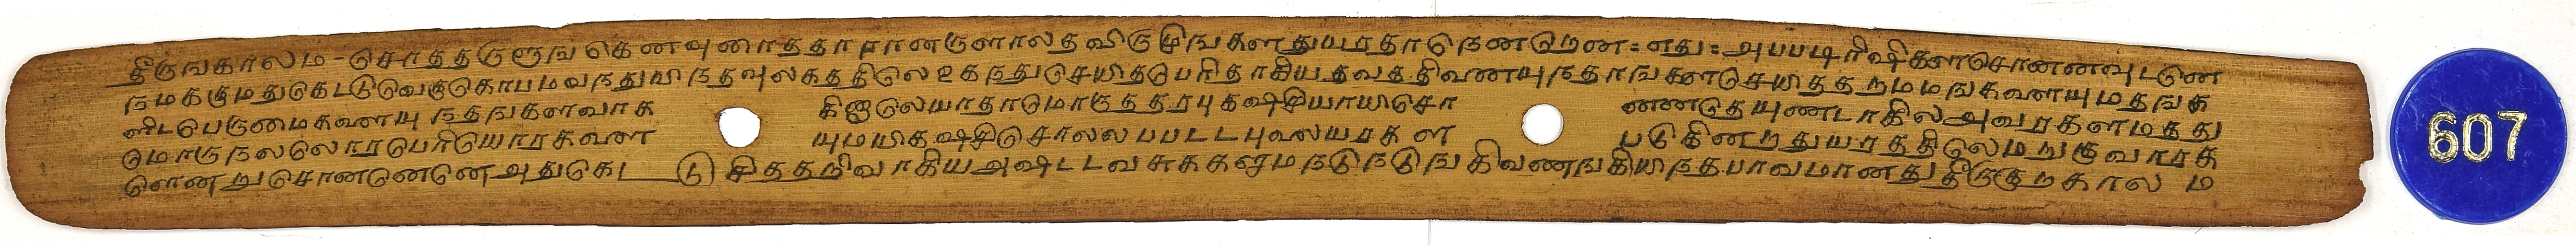 தீருஙகாலம - சொதத குரூஙகெணவு ளாததா ரானகுளாலத விருமிஙகள துயரதா னெணடுறண : எது : அபபடி ரிஷிகள சொனனவுடனெ
நமககு மதுகெட்டு வெகுகொபம வநது யிநதவுலகததிலெ உகநது செயிதபெரிதாகிய தவததிவணயு நதாஙகள செயிதத றமமஙகளையு மதஙக
ளிட பெருமைகளையு நதஙகளவாக கிலெயாதாமொருததரபுகஷசியாயிசொ னணதெயுணடாகில அவரகளமதது
மொருநலலொர பெரியொரகளை யுமயிகஷசிசொலல பபடடபுவலயரகள படுகினறதுயரததிலெ மறுகுவாரக
ளெனறு சொனனெனெ அதுகெடடு சிததறிவாகிய அஷடடவசுககளும நடுநடுஙகி வணஙகியிநத பாவமானது தீருகுறகால ம
607